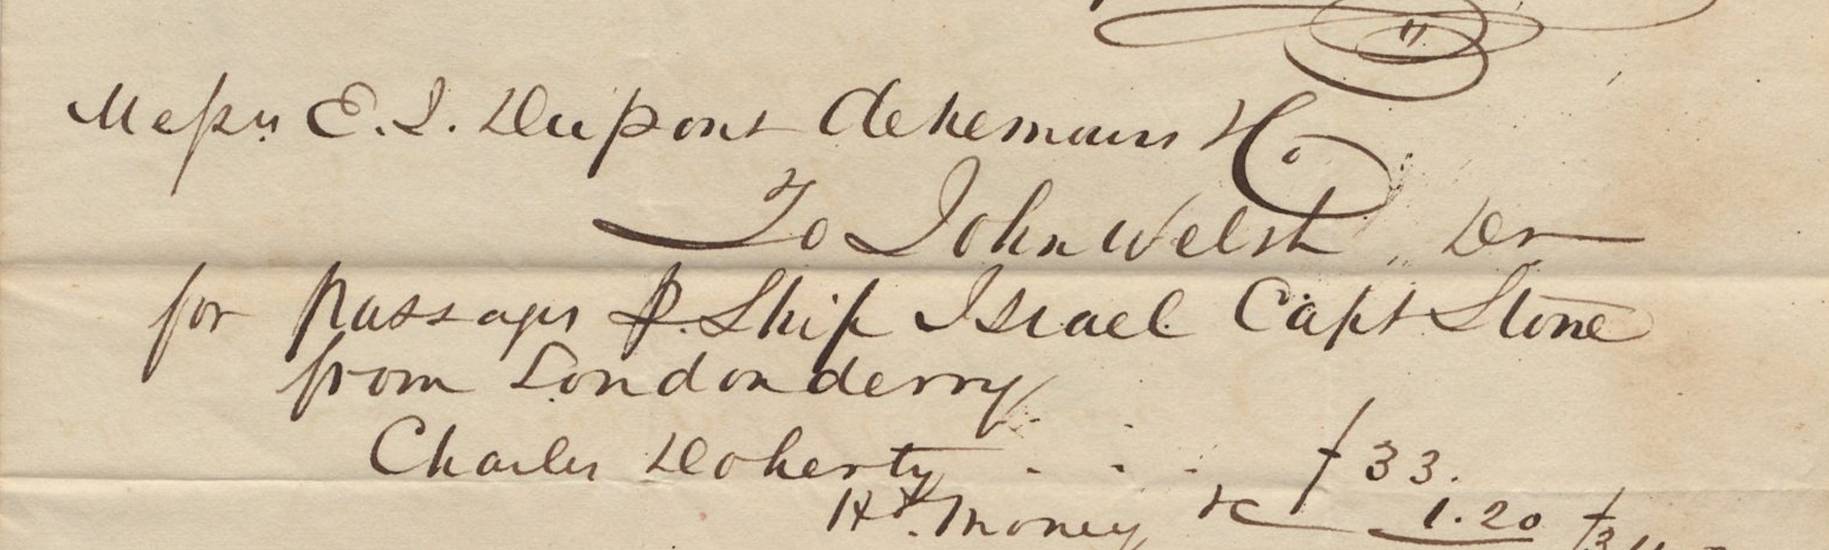 Messrs E. I. Dupont deNemours & Co.
To John Welsh Dr
for passages P. Ship Israel Capt Stone
from Londonderry
Charles Doherty . . . $33.
Hd. Money &c 1.20